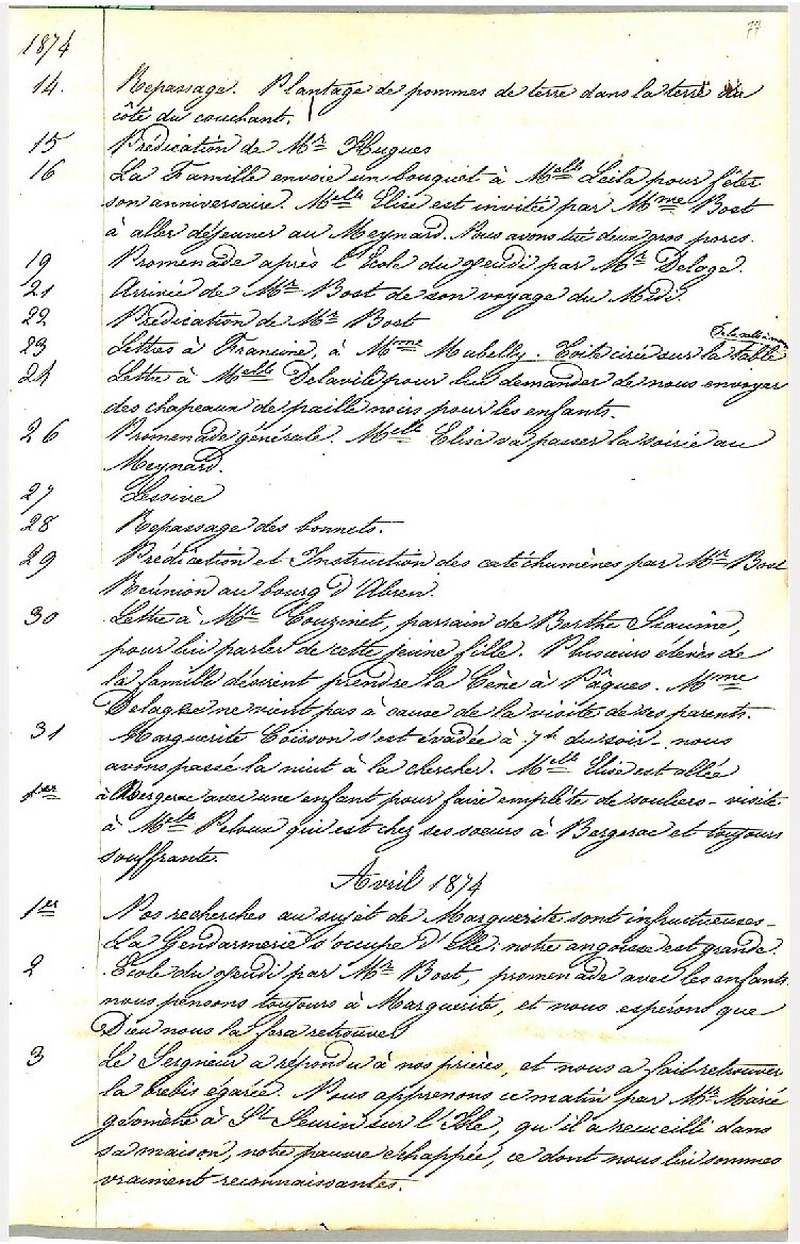 77
1874
14. Repassage. Plantage de pommes de terre dans la terre du
côté du couchant.
15 Prédication de Mr Hugues
16 La Famille envoie un bouquet à Melle Leïla pour fêter
son anniversaire. Melle Elise est invitée par Mme Bost
à aller déjeuner au Meynard. Nous avons tué deux gros porcs.
19 Promenade après l'Ecole du Jeudi par Mr Deloge.
21 Arrivée de Mr Bost de son voyage du Midi.
22 Prédication de Mr Bost
de la salle à man
23 Lettres à Francine, à Mme Mabelly. Toile cirée sur la table
24 Lettre à Melle Delavile pour lui demander de nous envoyer
des chapeaux de paille noirs pour les enfants.
26 Promenade générale. Melle Elise va passer la soirée au
Meynard.
27 Lessive
28 Repassage des bonnets.
29 Prédication et Instruction des catéchumènes par Mr Bost
Réunion au bourg d'Abren.
30 Lettre à Mr Couzinet, parrain de Berthe Seaume,
pour lui parler de cette jeune fille. Plusieurs élèves de
la famille désirent prendre la Cène à Pâques. Mme
Delagbe ne vient pas à cause de la visite de ses parents.
31 Marguerite Coïsson s'est évadée à 7h du soir - nous
avons passé la nuit à la chercher. Melle Elise est allée
1er à Bergerac avec une enfant pour faire emplète de souliers - visite
à Melle Peloux qui est chez ses soeurs à Bergerac et toujours
souffrante.
Avril 1874
1er Nos recherches au sujet de Marguerite sont infructueuses -
La Gendarmerie s'occupe d'Elle: notre angoisse est grande.
2 Ecole du Jeudi par Mr Bost, promenade avec les enfants
nous pensons toujours à Marguerite, et nous espérons que
Dieu nous la fera retrouver
3 Le Seigneur a répondu à nos prières, et nous a fait retrouver
la brebis égarée. Nous apprenons ce matin par Mr Marié
géomètre à St Seurin sur l'Isle, qu'il a recueilli dans
sa maison, notre pauvre échappée, ce dont nous lui sommes
vraiment reconnaissantes.